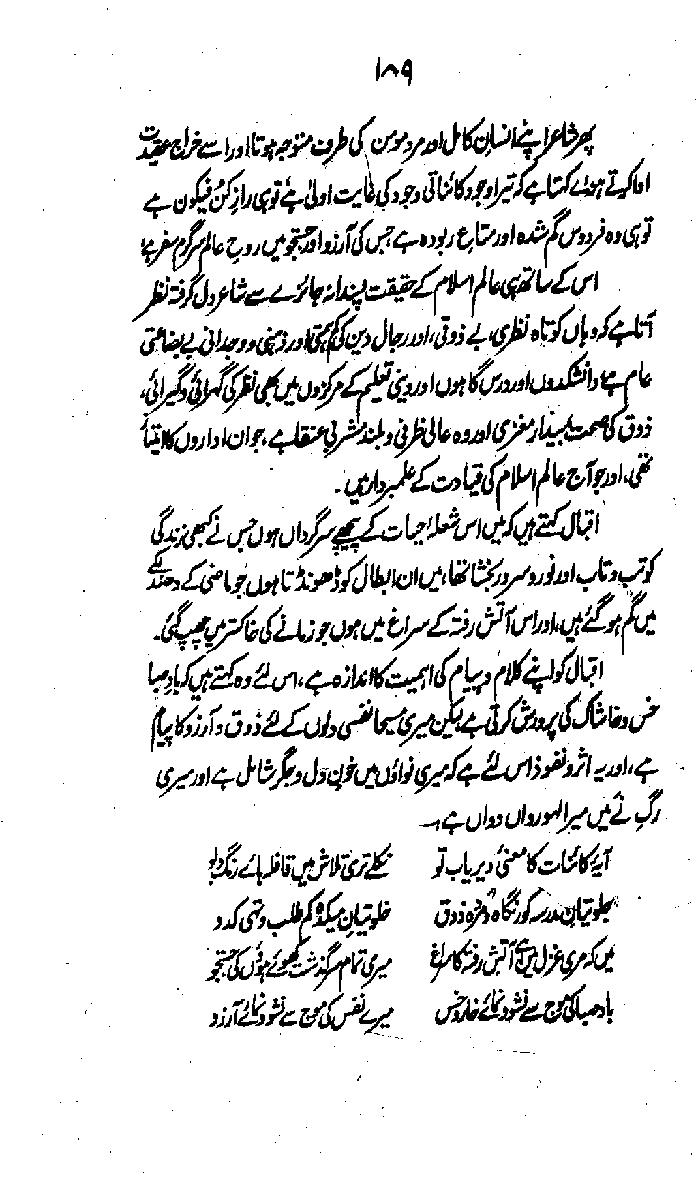 ۱۸۹
پھر شاعر اپنے انسان کامل اور مرد مومن کی طرف متوجہ ہوتا اور اسے خراج عقیدت
ادا کرتے ہوئے کہتا ہے کہ تیرا وجود کائناتی وجود کی غایت اولیٰ ہے تو ہی رازِ کن فیکون ہے
تو ہی وہ فردوس گم شدہ اور متاع ربودہ ہے جس کی آرزو اور جستجو میں روح عالم سرگرم سفر ہے،
اس کے ساتھ ہی عالم اسلام کے حقیقت پسندانہ جائزے سے شاعر دل گرفتہ نظر
آتا ہے کہ وہاں کوتاہ نظری، بے ذوقی، اور رجال دین کی کم ہمتی اور ذہنی و وجدانی بے بضاعتی
عام ہے، دانشکدوں اور درس گاہوں اور دینی تعلیم کے مرکزوں میں بھی نظر کی گہرائی و گیرائی،
ذوق کی صحت، بیدار مغزی اور وہ عالی ظرفی و بلند مشربی عنقا ہے، جو ان اداروں کا امتیاز
تھی، اور جو آج عالم اسلام کی قیادت کے علمبردار ہیں۔
اقبال کہتے ہیں کہ میں اس شعلۂ حیات کے پیچھے سرگرداں ہوں جس نے کبھی زندگی
کو تب و تاب اور نور و سرور بخشا تھا، میں ان ابطال کو ڈھونڈتا ہوں جو ماضی کے دھندلکے
میں گم ہو گئے ہیں، اور اس آتش رفتہ کے سراغ میں ہوں جو زمانے کی خاکستر میں چھپ گئی۔
اقبال کو اپنے کلام و پیام کی اہمیت کا اندازہ ہے، اس لئے وہ کہتے ہیں کہ باد صبا
خس و خاشاک کی پرورش کرتی ہے لیکن میری مسیحا نفسی دلوں کے لئے ذوق و آرزو کا پیام
ہے، اور یہ اثر و نفوذ اس لئے ہے کہ میری نواؤں میں خون دل و جگر شامل ہے اور میری
رگِ نے میں میرا لہو رواں دواں ہے۔
آیۂ کائنات کا معنیٔ دیریاب تو نکلے تری تلاش میں قافلہ ہائے رنگ و بو
جلوتیانِ مدرسہ کور نگاہ و مردہ ذوق خلوتیانِ میکدہ کم طلب و تہی کدو
میں کہ مری غزل میں ہے آتش رفتہ کا سراغ میری تمام سرگذشت کھوئے ہوؤں کی جستجو
باد صبا کی موج سے نشو و نمائے خار و خس میرے نفس کی موج سے نشو و نمائے آرزو